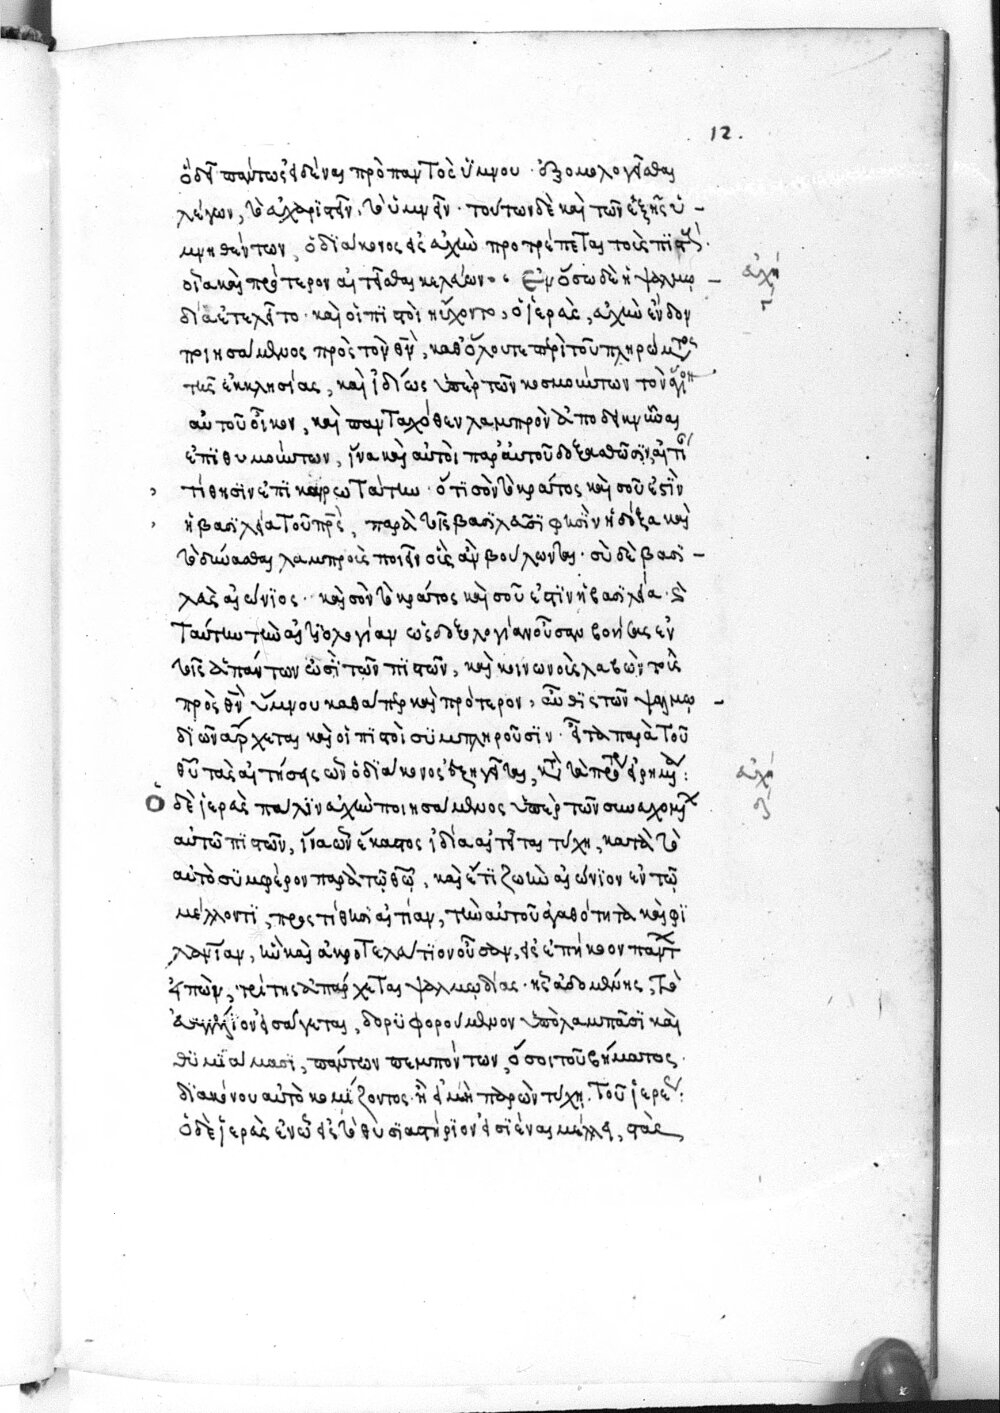 12.
ὅθεν πάντως εἰδέναι πρὸ παντὸς ὕμνου· ἐξομολογεῖσθαι
λέγων, τὸ εὐχαριστεῖν, τὸ ὑμνεῖν· τούτων δὲ καὶ τῶν ἑξῆς ὑ-
μνηθέντων, ὁ διάκονος εἰς εὐχὴν προτρέπεται τοὺς πιστούς·
οἷα καὶ πρότερον αἰτεῖσθαι κελεύων· Ἐν ὅσῳ δὲ ἡ ψαλμῳ-
εὐχή
δία ἐτελεῖτο· καὶ οἱ πιστοὶ ηὔχοντο, ὁ ἱερεὺς, εὐχὴν ἔνδον
ποιησάμενος πρὸς τὸν θν, καθόλου τε περὶ τοῦ πληρώματος
τῆς ἐκκλησίας, καὶ ἰδίως ὑπὲρ τῶν κοσμούντων τὸν ἅγιον
αὐτοῦ οἶκον, καὶ πανταχόθεν λαμπρὸν ἀποδεικνῦσαι
ἐπιθυμούντων, ἵνα καὶ αὐτοὶ παρ' αὐτοῦ δοξασθῶσιν, αἰτί
τίθησιν ἐπὶ καιρῷ ταύτην· ὅτι σὸν τὸ κράτος καὶ σοῦ ἐστὶν
ἡ βασιλεία τοῦ πρς, παρὰ τοῖς βασιλεῦσι φησὶν ἡ δόξα καὶ
τὸ δύνασθαι λαμπροὺς ποιεῖν οἷς ἂν βούλωνται· σὺ δὲ βασι-
λεὺς αἰώνιος· καὶ σὸν τὸ κράτος καὶ σοῦ ἐστιν ἡ βασιλεία·
ταύτην τὴν αἰτιολογίαν ὡς δοξολογίαν οὖσαν
τοῖς ἁπάντων ὠσὶ τῶν πιστῶν, καὶ κοινωνοὺς λαβὼν τοῖς
πρὸς θν ὕμνου καθάπερ καὶ πρότερον, αὖθις τῶν ψαλμῳ-
διῶν ἄρχεται καὶ οἱ πιστοὶ συμπληροῦσιν· εἶτα παρὰ τοῦ
θυ τὰς αἰτήσεις ὧν ὁ διάκονος ἐξηγεῖται, κατὰ τὸ προειρημένον:
εὐχή
Ὁ δὲ ἱερεὺς πάλιν εὐχὴν ποιησάμενος ὑπὲρ τῶν συνευχομένων
αὐτῷ πιστῶν, ἵνα ὧν ἕκαστος ἰδίᾳ αἰτεῖται τύχῃ, κατὰ τὸ
αὐτὸ συμφέρον παρὰ τῷ θῷ, καὶ ἔτι ζωὴν αἰώνιον ἐν τῷ
μέλλοντι, προστίθησι αἰτίαν, τὴν αὐτοῦ ἀγαθότητα καὶ φι
λανίαν, ἣν καὶ ἀκροτελεύτιον οὖσαν, εἰς ἐπήκοον πάντων
εἰπὼν, τρίτης ἀπάρχεται ψαλμῳδίας· ἧς ᾀδομένης, τὸ
εὐαγγέλιον εἰσάγεται, δορυφορούμενον ὑπὸ λαμπᾶσι καὶ
θυμιάμασι, πάντων πεμπόντων, ὅσοι τοῦ βήματος·
διακόνου αὐτὸ κομίζοντος· ἢ εἰ μὴ παρὼν τύχῃ, τοῦ ἱερέως:
ὁ δὲ ἱερεὺς ἐν ᾧ εἰς τὸ θυσιαστήριον εἰσιέναι μέλλει, στὰς